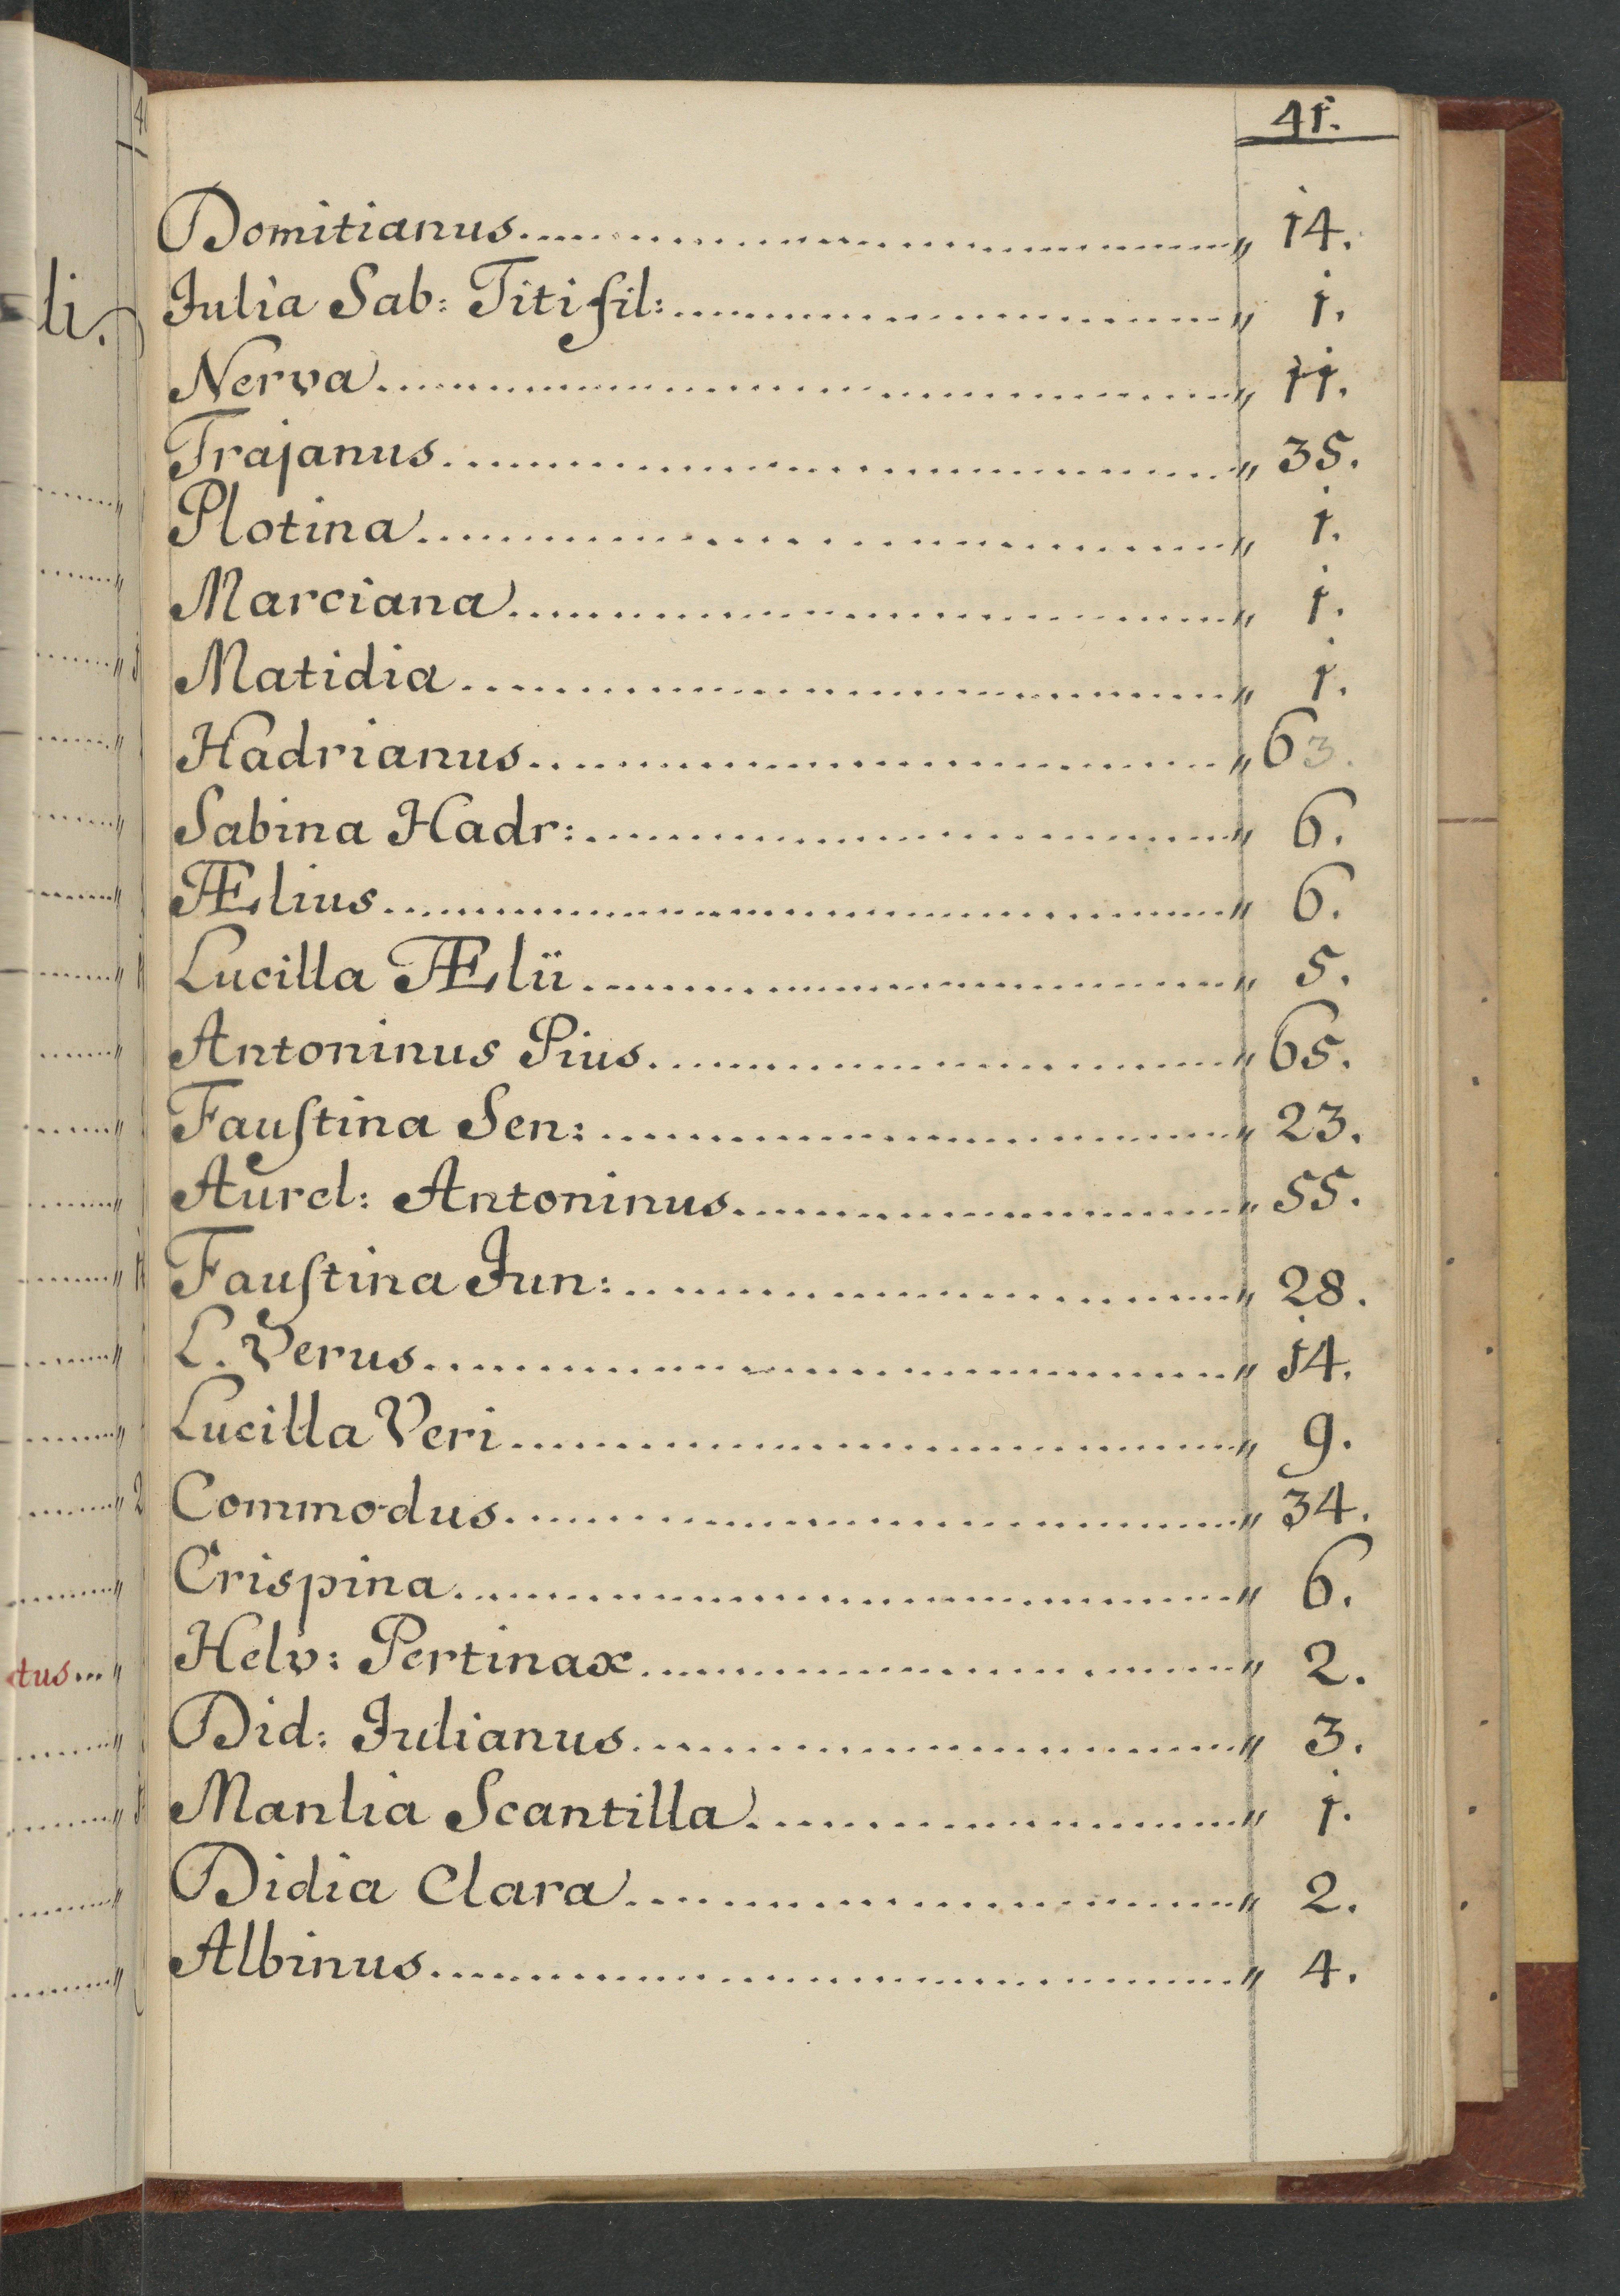 41.
Domitianus........................„ 14.
Julia Sab: Titi fil:........................„ 1.
Nerva........................„ 11.
Trajanus........................„ 35.
Plotina........................„ 1.
Marciana........................„ 1.
Matidia........................„ 1.
Hadrianus........................„ 63.
Sabina Hadr:........................„ 6.
Ælius........................„ 6.
Lucilla Ælii........................„ 5.
Antoninus Pius........................„ 65.
Fauſtina Sen:........................„ 23.
Aurel: Antoninus........................„ 55.
Fauſtina Jun:........................„ 28.
L. Verus........................„ 14.
Lucilla Veri........................„ 9.
Commodus........................„ 34.
Crispina........................„ 6.
Helv: Pertinax........................„ 2.
Did: Julianus........................„ 3.
Manlia Scantilla........................„ 1.
Didia Clara........................„ 2.
Albinus........................„ 4.